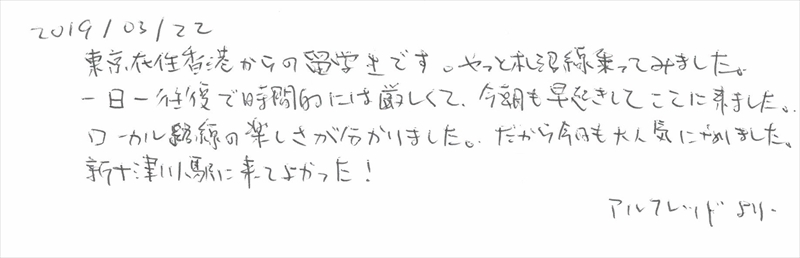 2019/03/22
東京在住香港からの留学生です。やっと札沼線乗ってみました。
一日一往復で時間的には厳しくて、今朝も早起きしてここに来ました。
ローカル路線の楽しさが分かりました。だから今日も大人気に
新十津川駅に来てよかった!
アルフレッドより.